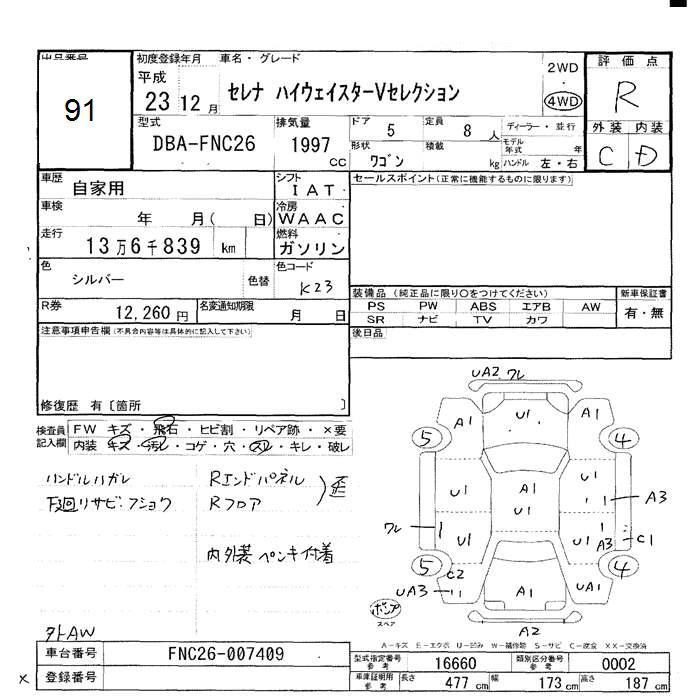 出品番号
91
初度登録年月
平成
23 12 月
車名・グレード
セレナ ハイウェイスターVセレクション
2WD
4WD
評価点
R
外装 内装
C D
型式
DBA-FNC26
排気量
1997
cc
ドア 5
定員 8 人
ディーラー・並行
形状 ワゴン
積載 kg
モデル年式 年
ハンドル 左・右
車歴 自家用
シフト IAT
セールスポイント(正常に機能するものに限ります)
車検 年 月( 日)
冷房 WAAC
走行 13万6千839 km
燃料 ガソリン
色 シルバー 色替
色コード K23
装備品 (純正品に限り○をつけてください)
新車保証書
PS PW ABS エアB AW
有・無
SR ナビ TV カワ
R券 12,260円
名変通知期限 月 日
後日品
注意事項申告欄(不具合内容等は具体的に記入して下さい)
修復歴 有〔箇所 〕
検査員記入欄
FW キズ・飛石・ヒビ割・リペア跡・×要
内装 キズ・汚レ・コゲ・穴・スレ・キレ・破レ
ハンドルハガレ
下回リサビ・フショク
Rエンドパネル
Rフロア
歪
内外装ペンキ付着
外AW
UA2 ワレ
A1 U1 A1
5 4
U1 A1 U1
A3
U1
ワレ U1 U1 A3 C1
5 4
C2
UA3 A1 UA1
ポンプ
スペア
A2
A-キズ E-エクボ U-凹み W-補修跡 S-サビ C-腐食 XX-交換済
車台番号 FNC26-007409
登録番号
×
型式指定番号 参考 16660
類別区分番号 参考 0002
車庫証明用 参考
長さ 477 cm 幅 173 cm 高さ 187 cm